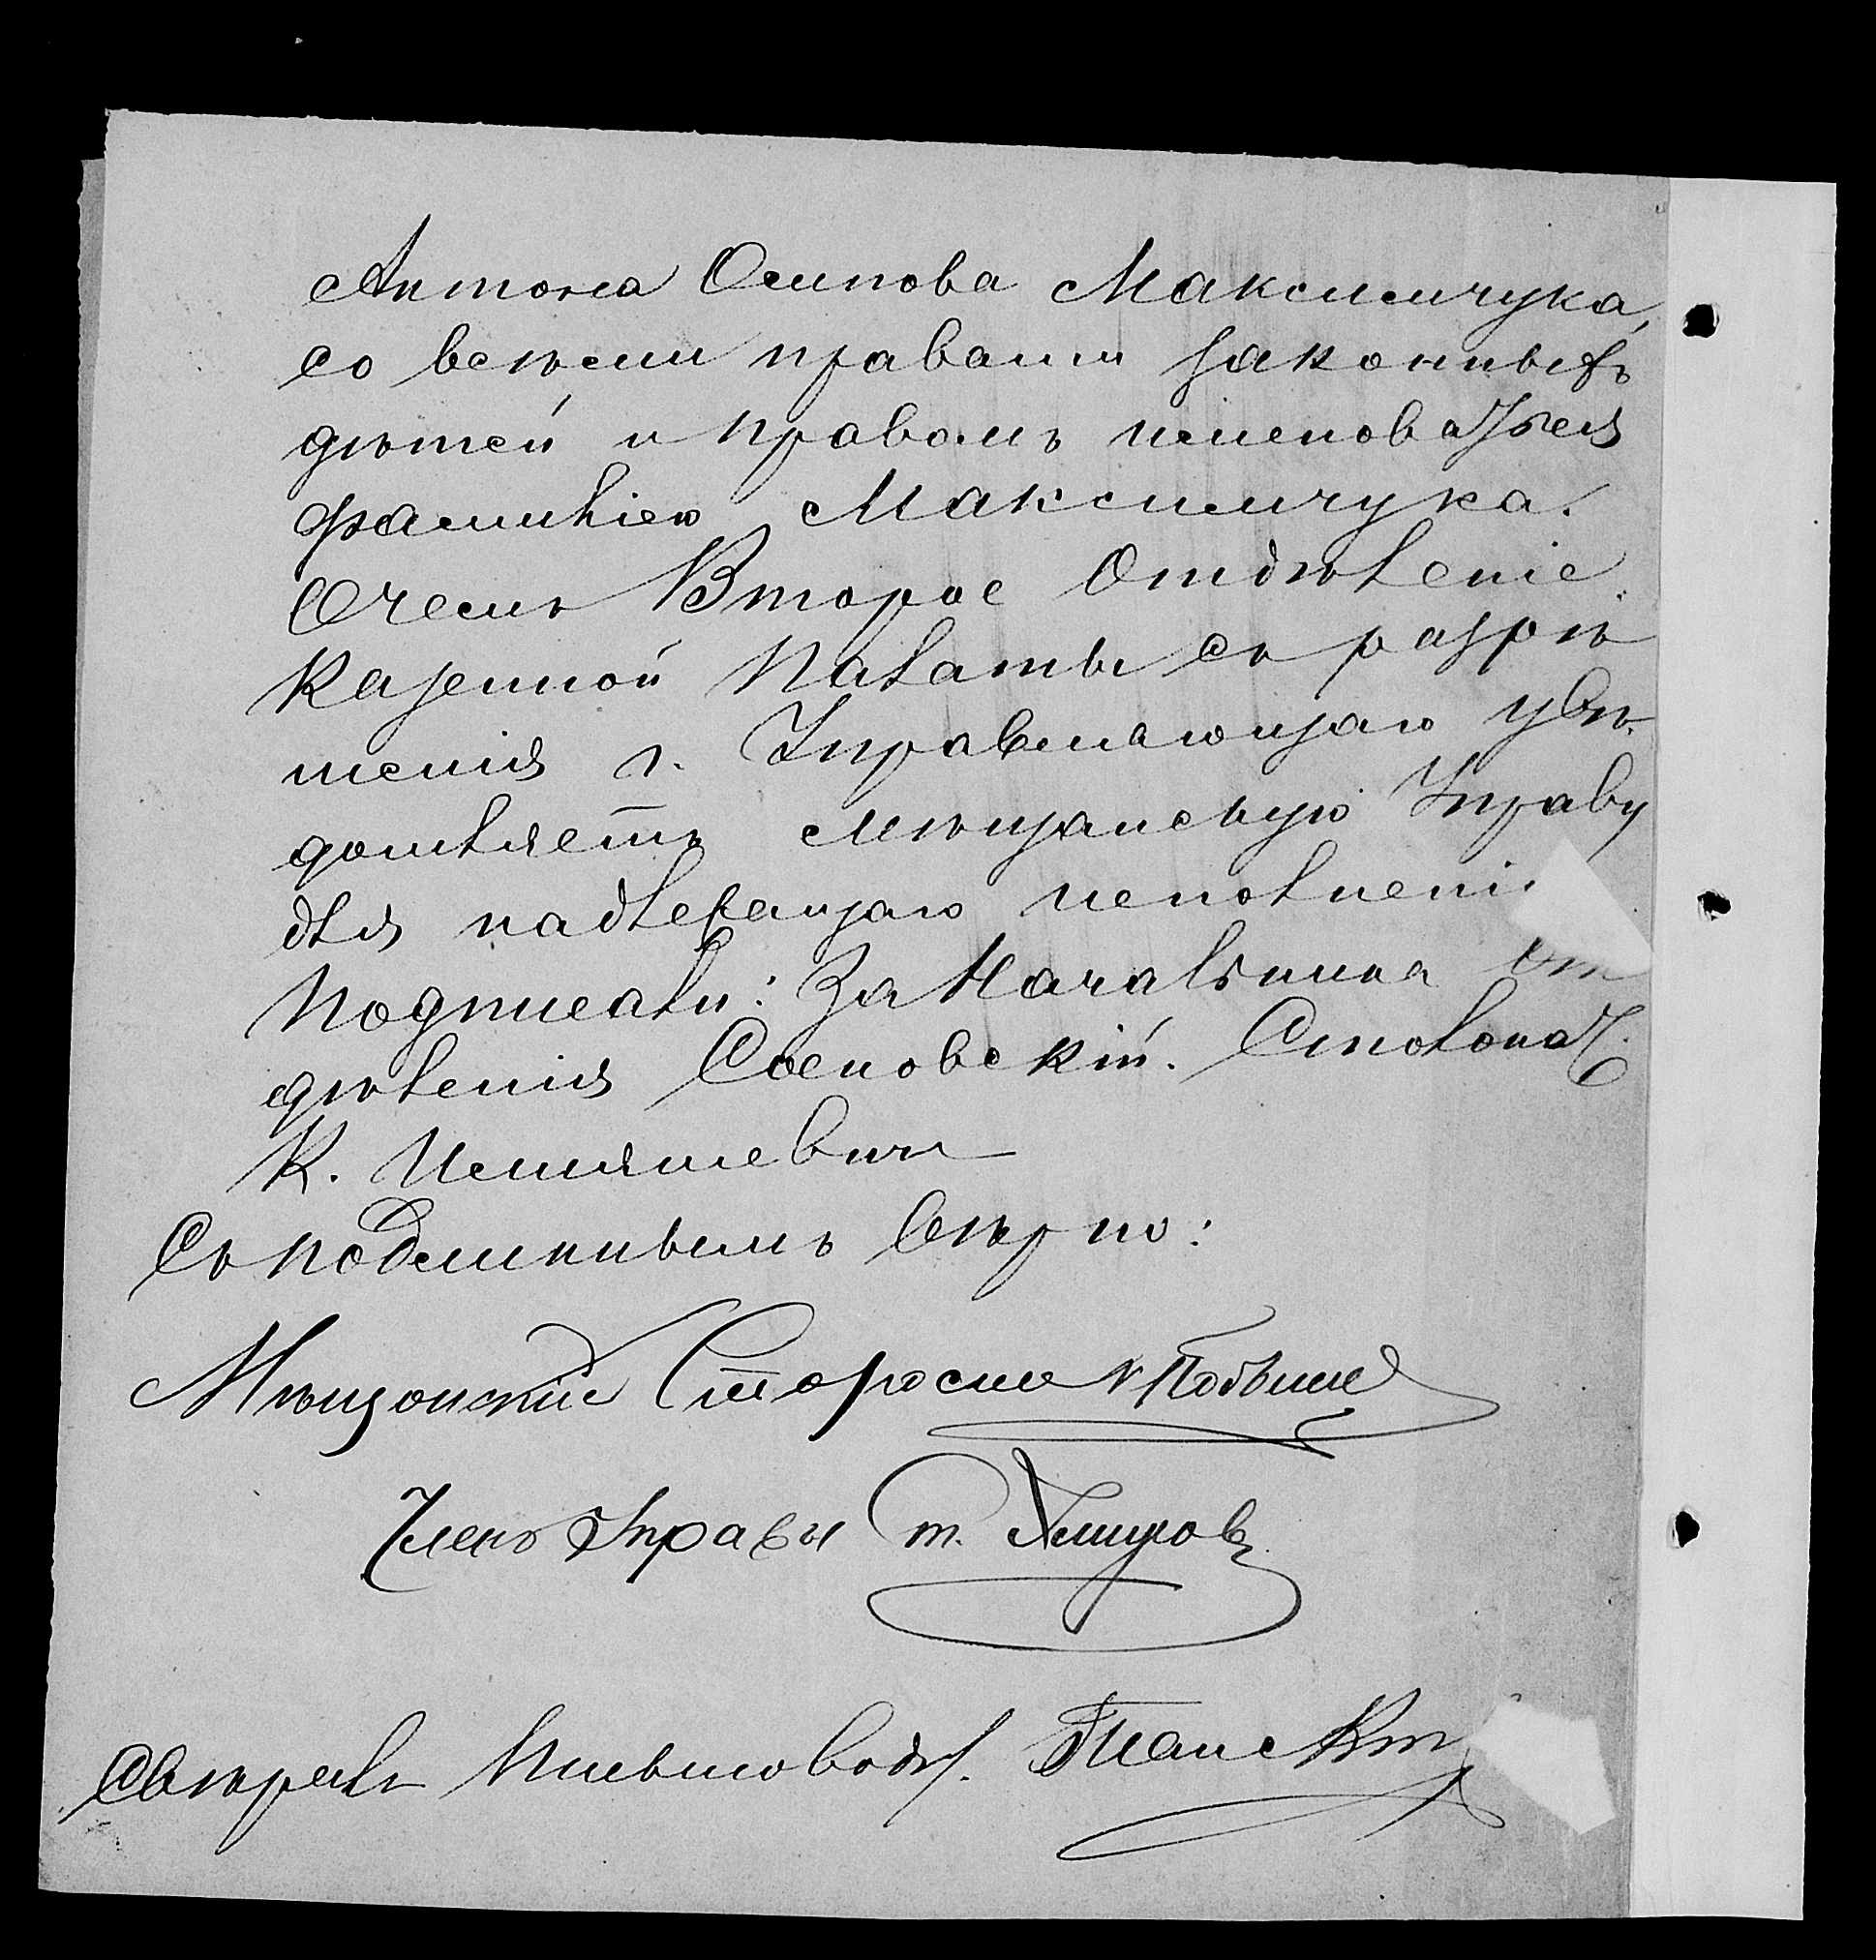 Антона Осипова Максимчука,
со всѣми правами законныхъ
дѣтей и правомъ именоваться
фамиліею Максимчука.
О чемъ Второе Отдѣленіе
Казенной Палаты съ разрѣ
шенія г. Управляющаго увѣ-
домляетъ Мѣщанскую Управу
для надлежащаго исполнені
Подписали: За Начальника От
дѣленія Сосновскій. Столонач.
К.
Съ подлиннымъ вѣрно:
Мѣщанскій Староста
Членъ Управы т.
Свѣрялъ Письмовод.